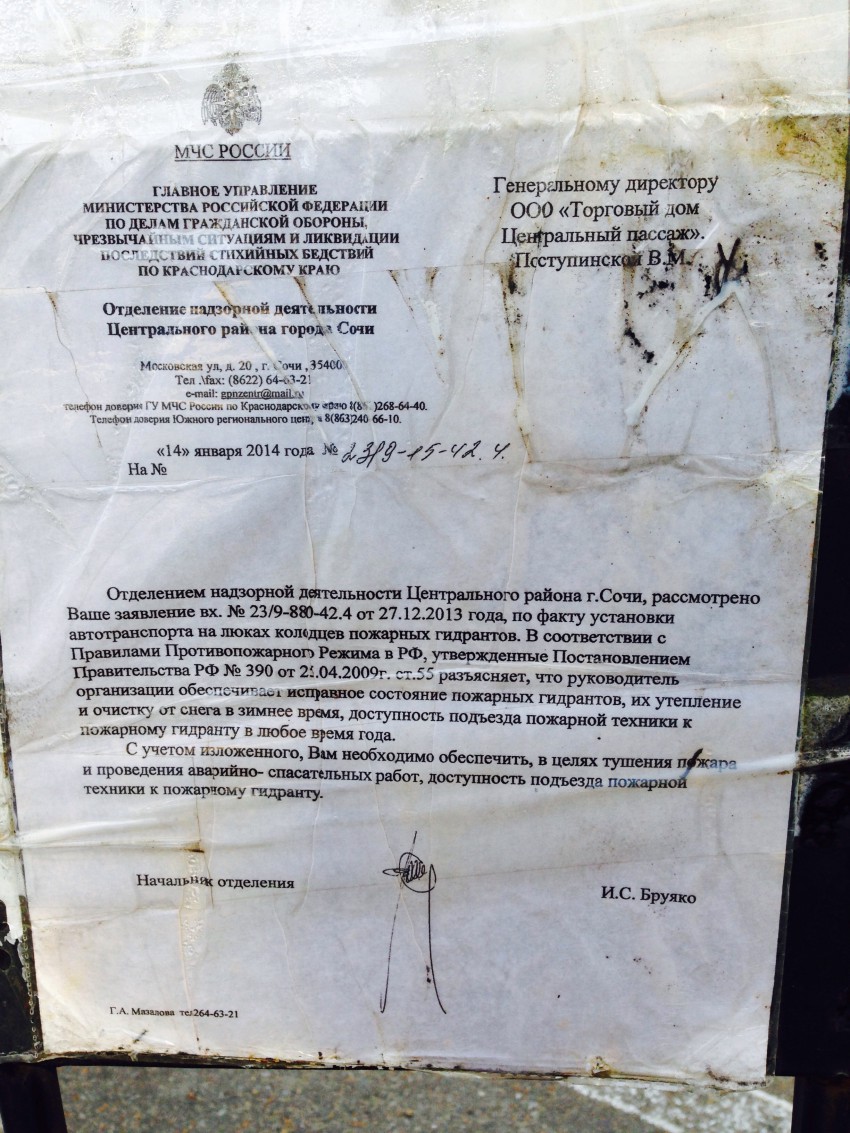 МЧС РОССИИ
ГЛАВНОЕ УПРАВЛЕНИЕ
МИНИСТЕРСТВА РОССИЙСКОЙ ФЕДЕРАЦИИ
ПО ДЕЛАМ ГРАЖДАНСКОЙ ОБОРОНЫ,
ЧРЕЗВЫЧАЙНЫМ СИТУАЦИЯМ И ЛИКВИДАЦИИ
ПОСЛЕДСТВИЙ СТИХИЙНЫХ БЕДСТВИЙ
ПО КРАСНОДАРСКОМУ КРАЮ
Отделение надзорной деятельности
Центрального района города Сочи
Московская ул, д. 20 , г. Сочи , 35400
Тел .\fax: (8622) 64-63-21
e-mail: gpnzentr@mail.ru
телефон доверия ГУ МЧС России по Краснодарскому краю )268-64-40.
Телефон доверия Южного регионального 8(863)240-66-10.
«14» января 2014 года №
На №
Генеральному директору
ООО «Торговый дом
Центральный пассаж».
Поступинской В.М.
Отделением надзорной деятельности Центрального района г.Сочи, рассмотрено
Ваше заявление вх. № 23/9-880-42.4 от 27.12.2013 года, по факту установки
автотранспорта на люках колодцев пожарных гидрантов. В соответствии с
Правилами Противопожарного Режима в РФ, утвержденные Постановлением
Правительства РФ № 390 от ст.55 разъясняет, что руководитель
организации обеспечивает исправное состояние пожарных гидрантов, их утепление
и очистку от снега в зимнее время, доступность подъезда пожарной техники к
пожарному гидранту в любое время года.
С учетом изложенного, Вам необходимо обеспечить, в целях тушения пожара
и проведения аварийно- спасательных работ, доступность подъезда пожарной
техники к пожарному гидранту.
Начальник отделения
И.С. Бруяко
Г.А. Мазалова тел264-63-21